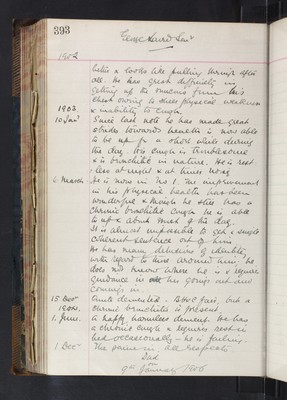 393
1902
better & looks like pulling through after
all. He has great difficulty in
getting up the mucous from his
chest owing to sheer physical weakness
& inability to cough.
1903.
10 Jany Since last note he has made great
strides towards health is now able
to be up for a short while during
the day. His cough is troublesome
& is bronchitic in nature. He is rest
less at night & at times noisy
6 March He is now in No 1. The improvement
in his physical health has been
wonderful & though he still has a
chronic bronchitic cough he is able
to be up & about most of the day.
It is almost impossible to get a single
coherent sentence out of him
He has many delusions of identity
with regard to those around him he
does not know where he is & requires
guidance in all his goings out and
comings in
15 Decr Quite demented - B.H.S fair, but a
chronic bronchitis is present.
1904.
1. June. A happy, harmless dement. He has
a chronic cough & requires rest in
bed occasionally - he is failing.
1 Decr The same in all respects
Died
9th January 1905